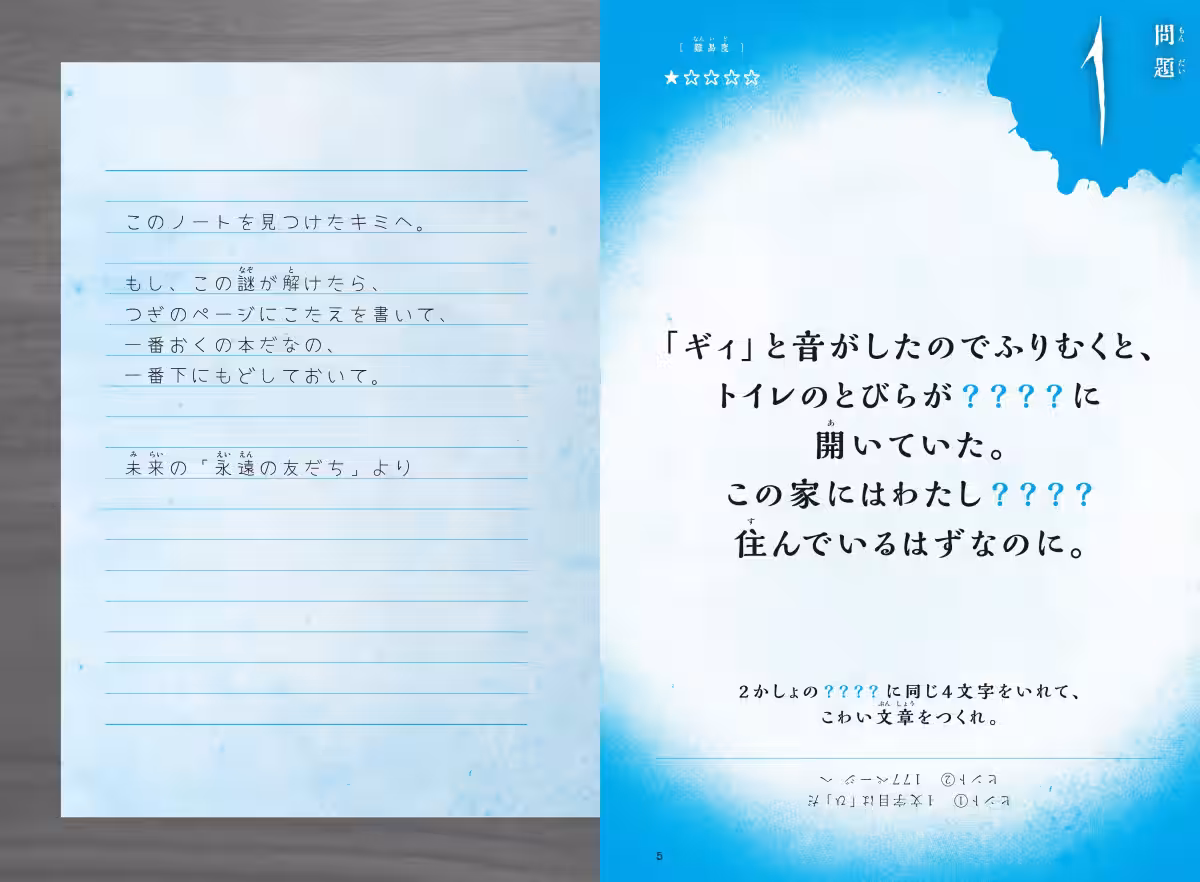 このノートを見つけたキミへ。
もし、この謎が解けたら、
つぎのページにこたえを書いて、
一番おくの本だなの、
一番下にもどしておいて。
未来の「永遠の友だち」より
問題
1
[ 難易度 ]
★☆☆☆☆
「ギィ」と音がしたのでふりむくと、
トイレのとびらが????に
開いていた。
この家にはわたし????
住んでいるはずなのに。
2かしょの????に同じ4文字をいれて、
こわい文章をつくれ。
ヒント① 1文字目は「ひ」だ
ヒント② 177ページへ
5